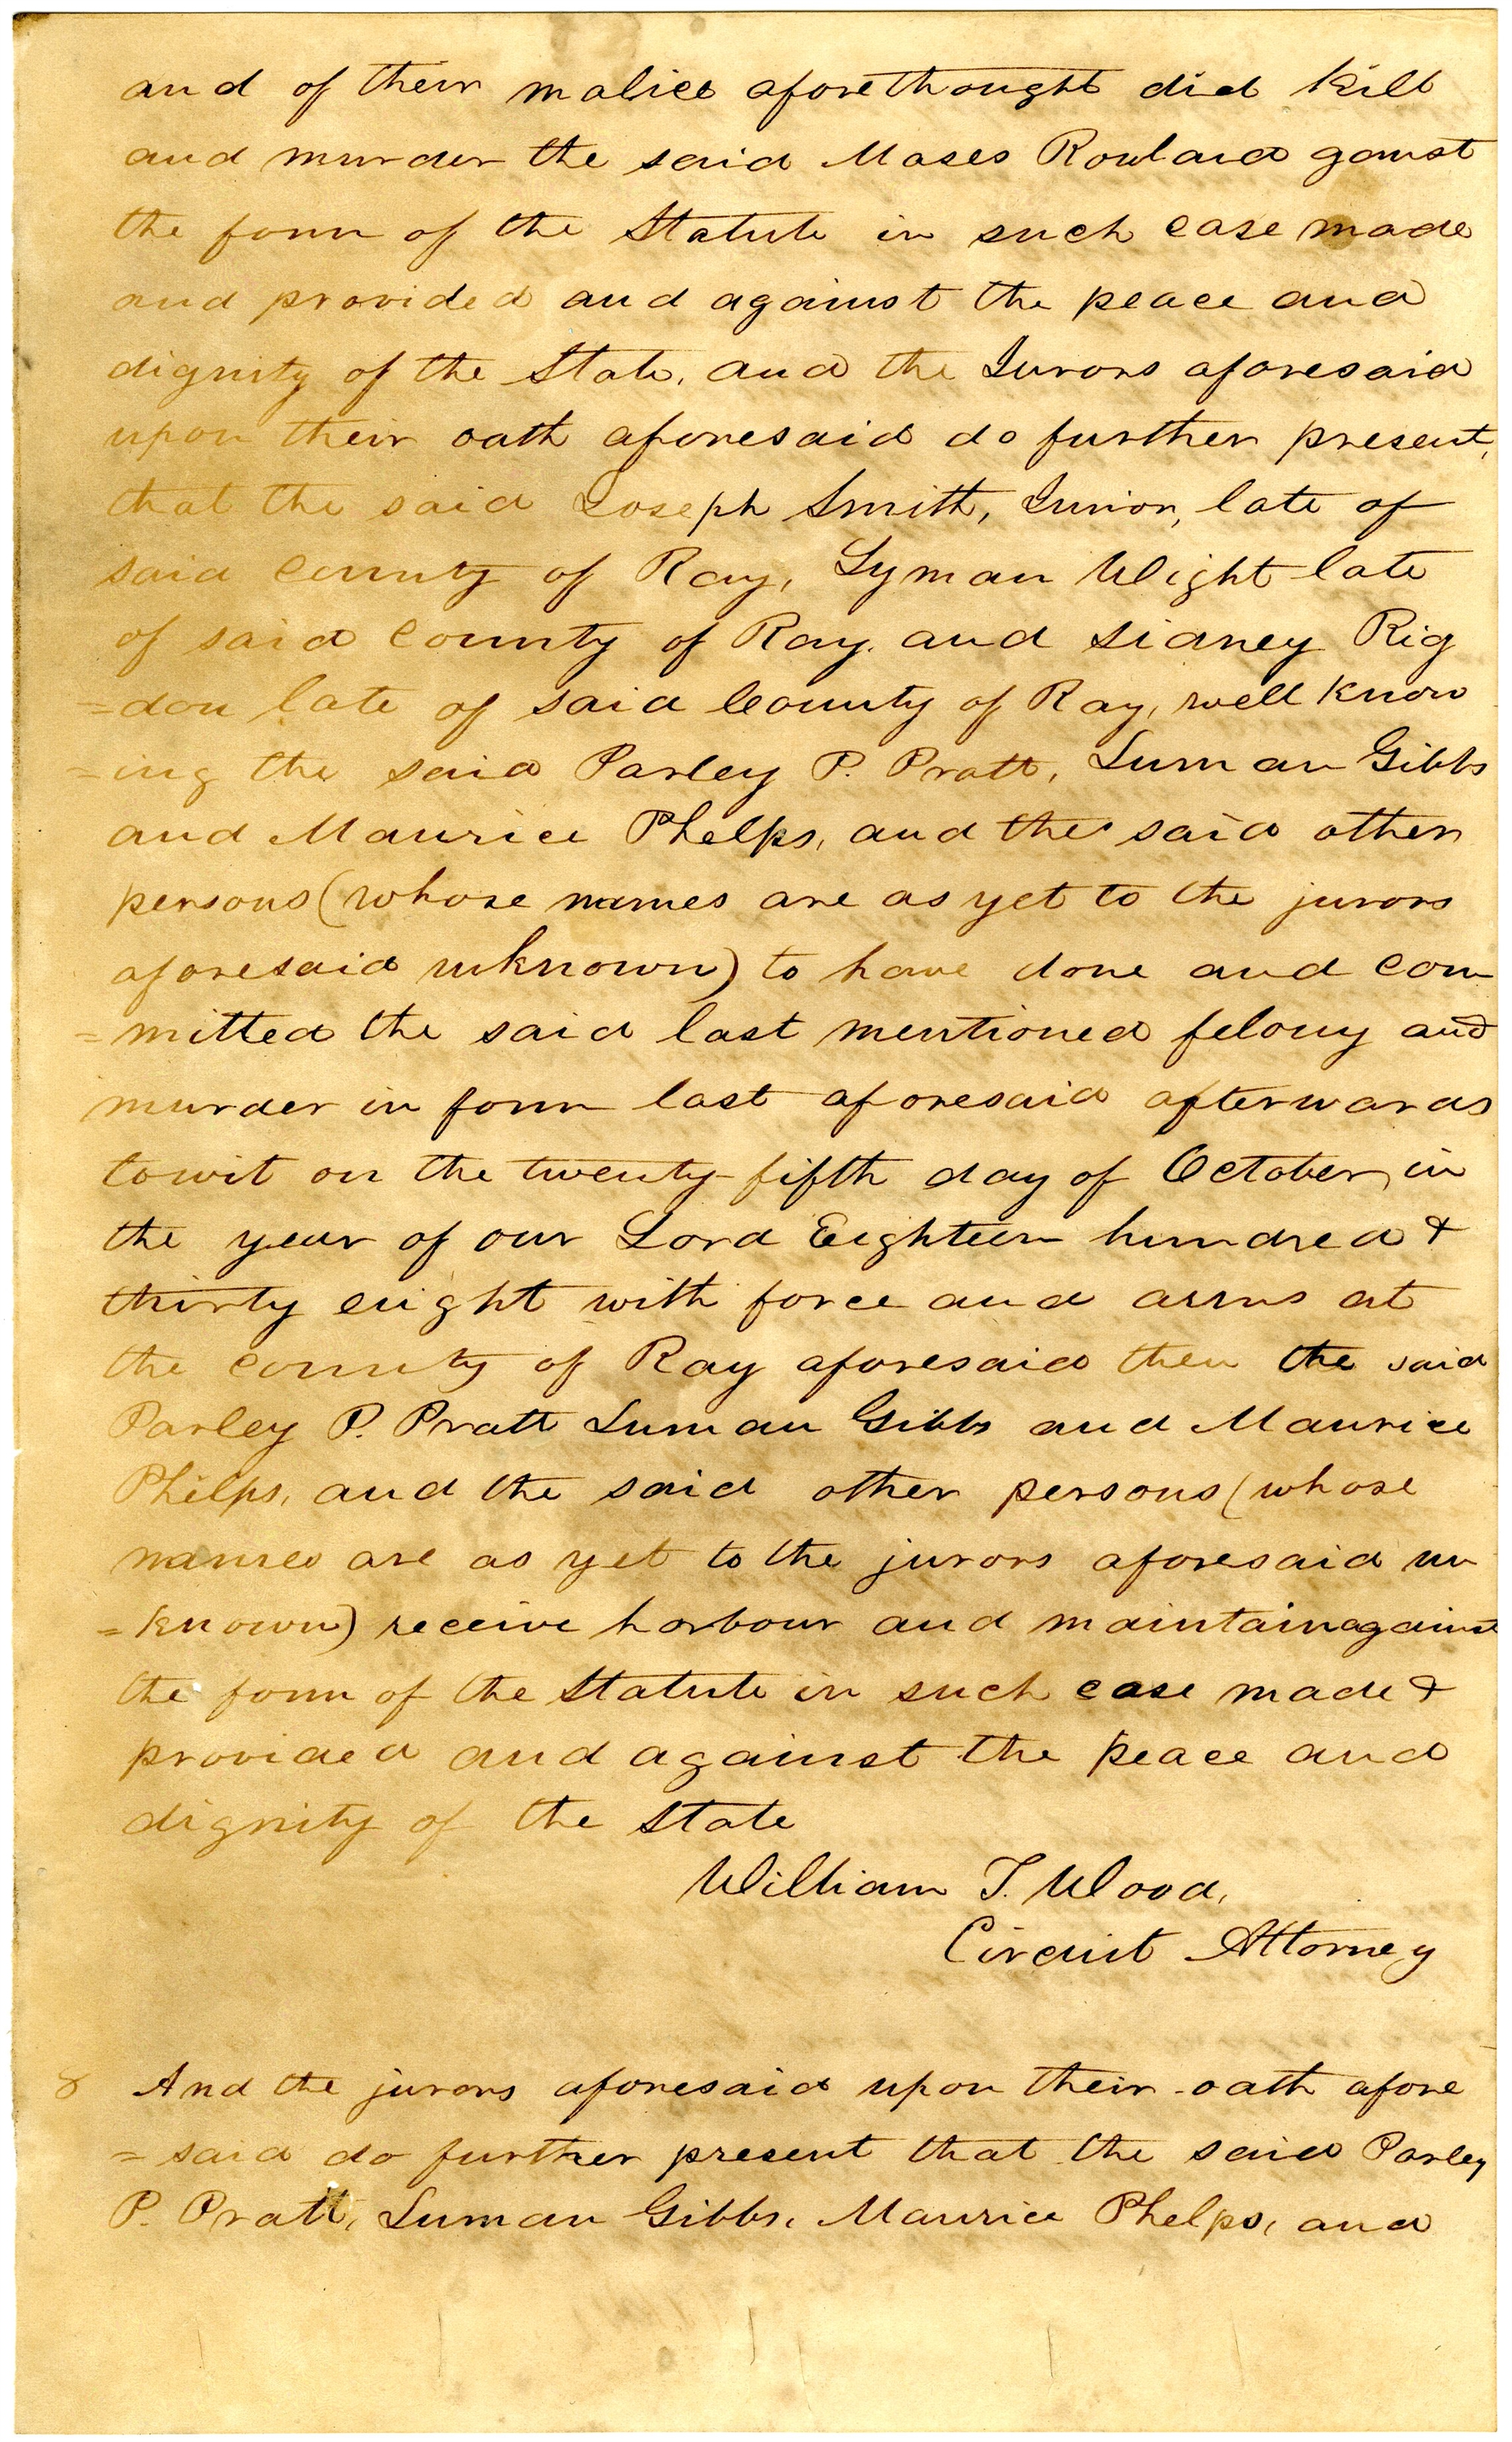 and of their malice aforethought did kill
and murder the said Moses Rowland ganst
the form of the Statute in such case made
and provided and against the peace and
dignity of the State, and the Jurors aforesaid
upon their oath aforesaid do further present,
that the said Joseph Smith, Junior, late of
said county of Ray, Lyman Wight late
of said County of Ray. and Sidney Rig
=don late of said County of Ray, well know
=ing the said Parley P. Pratt, Luman Gibbs
and Maurice Phelps, and the said other
persons (whose names are as yet to the jurors
aforesaid unknown) to have done and com
=mitted the said last mentioned felony and
murder in form last aforesaid afterwards
towit on the twenty-fifth day of October, in
the year of our Lord Eighteen hundred &
thirty eight with force and arms at
the county of Ray aforesaid then the said
Parley P. Pratt Luman Gibbs and Maurice
Phelps, and the said other persons (whose
names are as yet to the jurors aforesaid un
=known) receive harbour and maintain against
the form of the Statute in such case made &
provided and against the peace and
dignity of the State
William T. Wood,
Circuit Attorney
8 And the jurors aforesaid upon their oath afore
=said do further present that the said Parley
P. Pratt, Luman Gibbs, Maurice Phelps, and